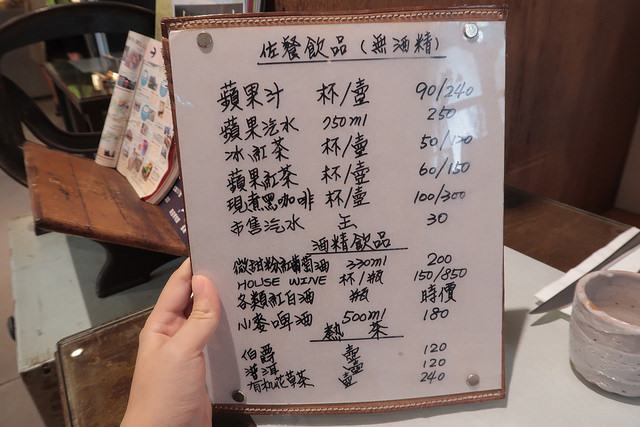 佐餐飲品(無酒精)
蘋果汁 杯/壺 90/240
蘋果汽水 750ml 250
冰紅茶 杯/壺 50/120
蘋果紅茶 杯/壺 60/150
現煮黑咖啡 杯/壺 100/300
市售汽水 缶 30
酒精飲品
微甜粉紅葡萄酒 330ml 200
HOUSE WINE 杯/瓶 150/850
各類紅白酒 瓶 時價
小麥啤酒 500ml 180
熱茶
伯爵 壺 120
普洱 壺 120
有机花草茶 壺 240